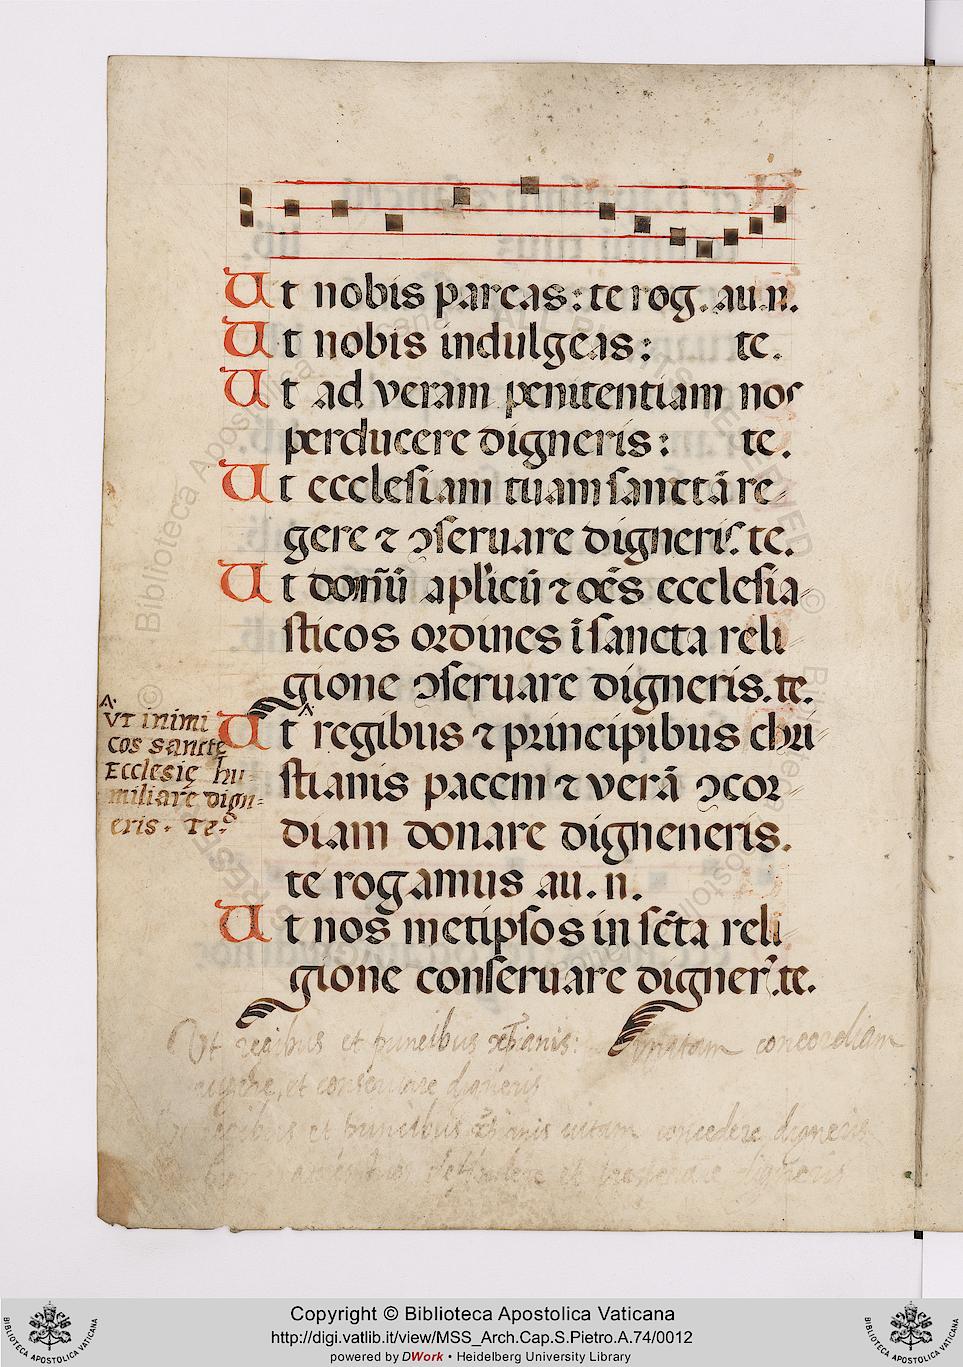 Ut nobis parcas: te rog. au. n.
Ut nobis indulgeas: te.
Ut ad veram penitentiam nos
perducere digneris: te.
Ut ecclesiam tuam sanctā re-
gere ⁊ ↄseruare digneris. te.
Ut domn̄ū aplicū ⁊ oēs ecclesia-
sticos ordines ī sancta reli-
gione ↄseruare digneris. te.
A.
UT inimi
cos sancte
Ecclesię hu-
miliare dign=
eris. Te.
Ut regibus ⁊ principibus chri-
stianis pacem ⁊ verā ↄcor-
diam donare digneneris.
te rogamus au. n.
Ut nos metipsos in sc̄ta reli-
gione conseruare digner̄. te.
Ut regibus et principibus xp̄ianis: concordiam
et conseruare digneris
et principibus xp̄ianis uitam concedere digneris
et digneris
Copyright © Biblioteca Apostolica Vaticana
http://digi.vatlib.it/view/MSS_Arch.Cap.S.Pietro.A.74/0012
powered by DWork • Heidelberg University Library
BIBLIOTECA APOSTOLICA VATICANA
BIBLIOTECA APOSTOLICA VATICANA